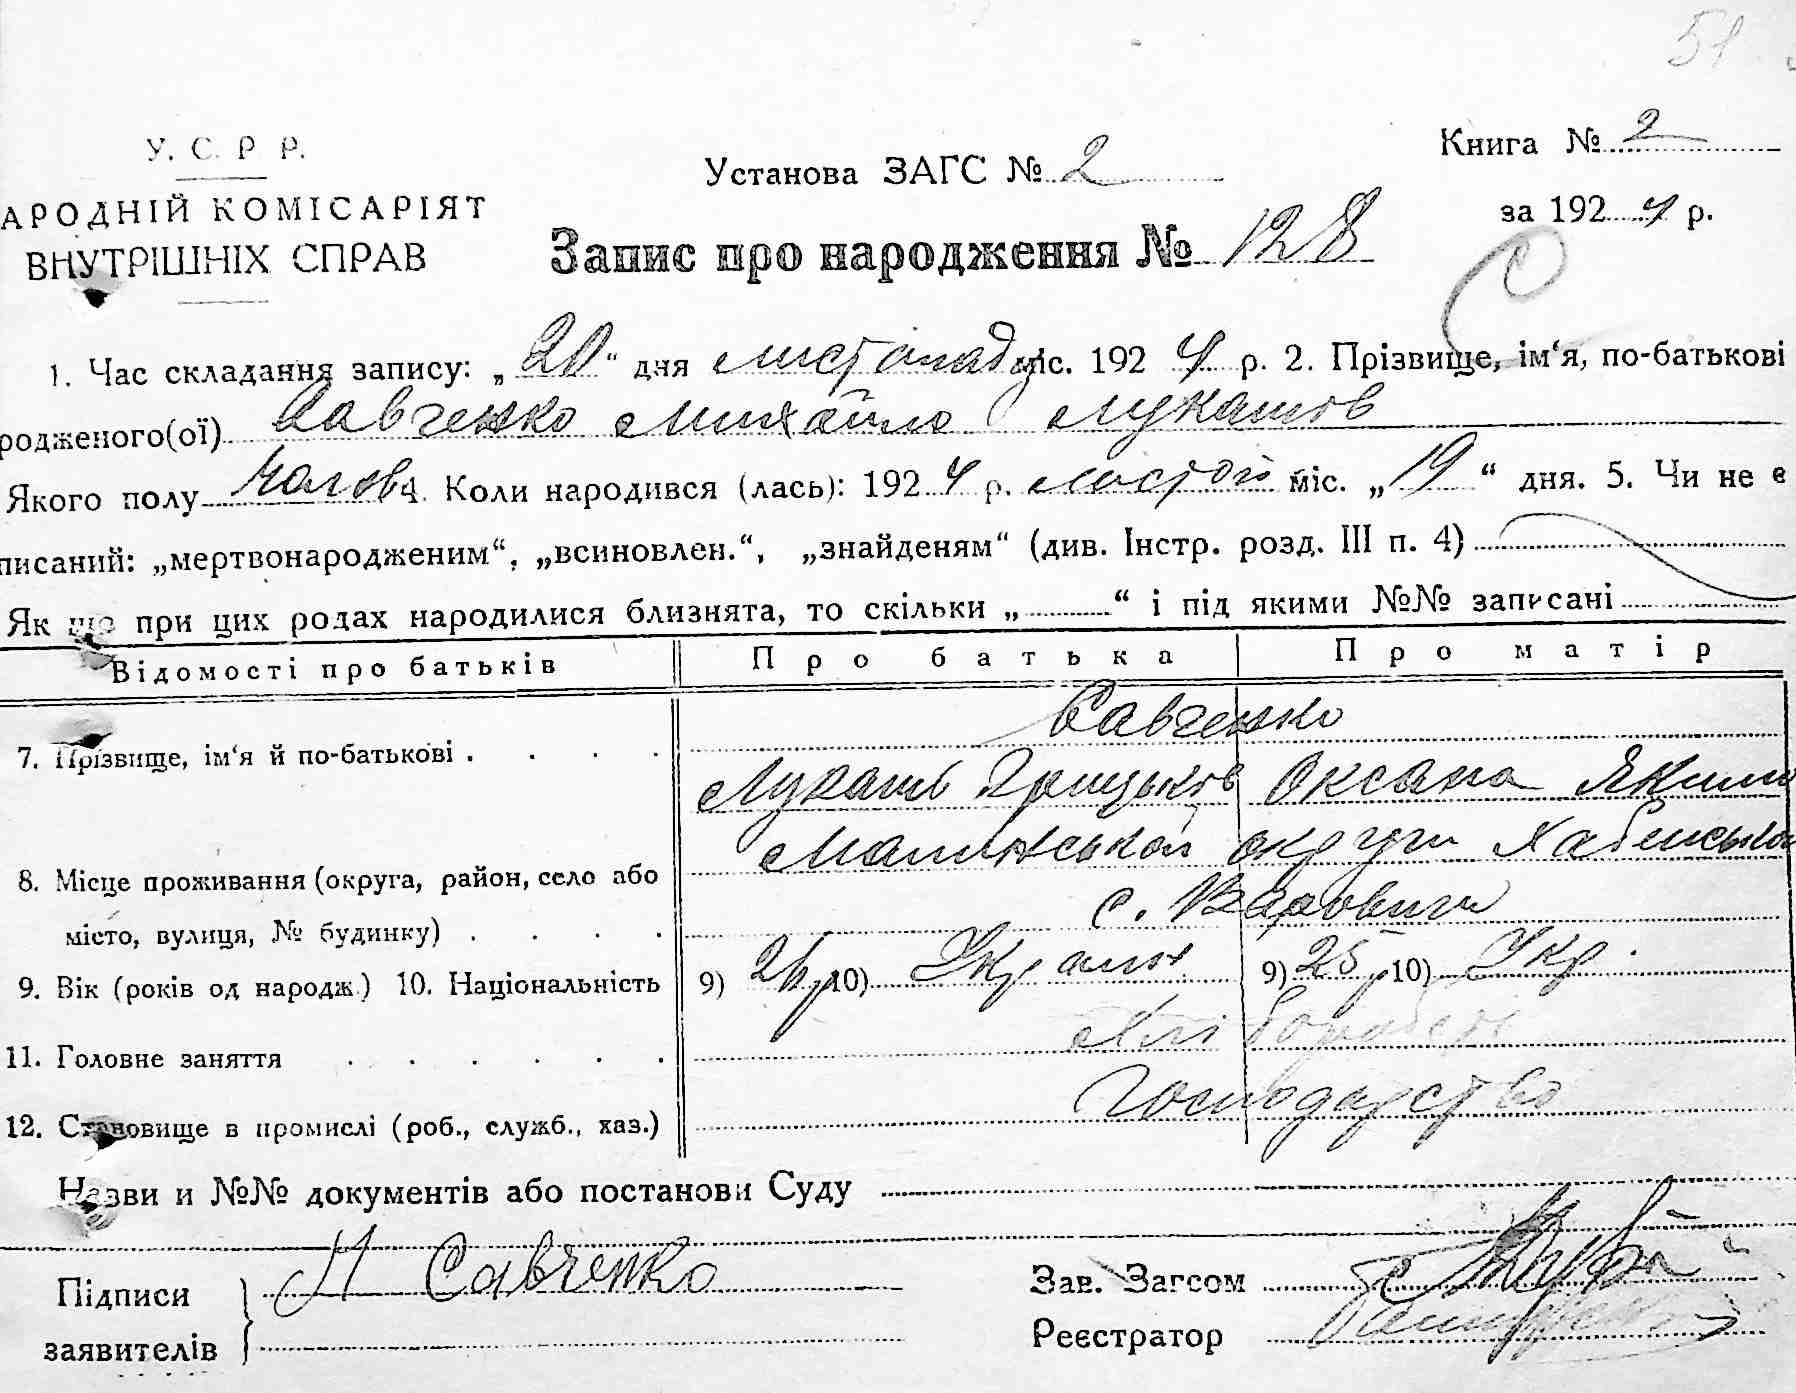 51
У. С. Р Р.
Книга № 2
Установа ЗАГС № 2
АРОДНІЙ КОМІСАРІЯТ
за 192 4 р.
ВНУТРІШНІХ СПРАВ
Запис про народження № 128
1. Час складання запису: „ 20 “ дня листопад міс. 192 4 р. 2. Прізвище, ім‘я, по-батькові
родженого(ої) Савченко Михайло Лукашов
Якого полу Чолов. 4. Коли народився (лась): 192 4 р. листоп міс. „ 19 “ дня. 5. Чи не є
писаний: „мертвонародженим“, „всиновлен.“, „знайденям“ (див. Інстр. розд. III п. 4)
Як що при цих родах народилися близнята, то скільки „ “ і під якими №№ записані
Відомості про батьків Про батька Про матір
Савченко
7. Прізвище, ім‘я й по-батькові
Лукаш Грицьків Оксана Яким
Малинської округи Хабенської
8. Місце проживання (округа, район, село або
місто, вулиця, № будинку)
с. Варовичи
9. Вік (років од народж.) 10. Національність 9) 26 р 10) Украин 9) 25 р 10) Укр.
11. Головне заняття Хлібороб
12. Становище в промислі (роб., служб., хаз.) Господарство
Назви и №№ документів або постанови Суду
Підписи
заявителів
Савченко
Зав. Загсом
Реєстратор